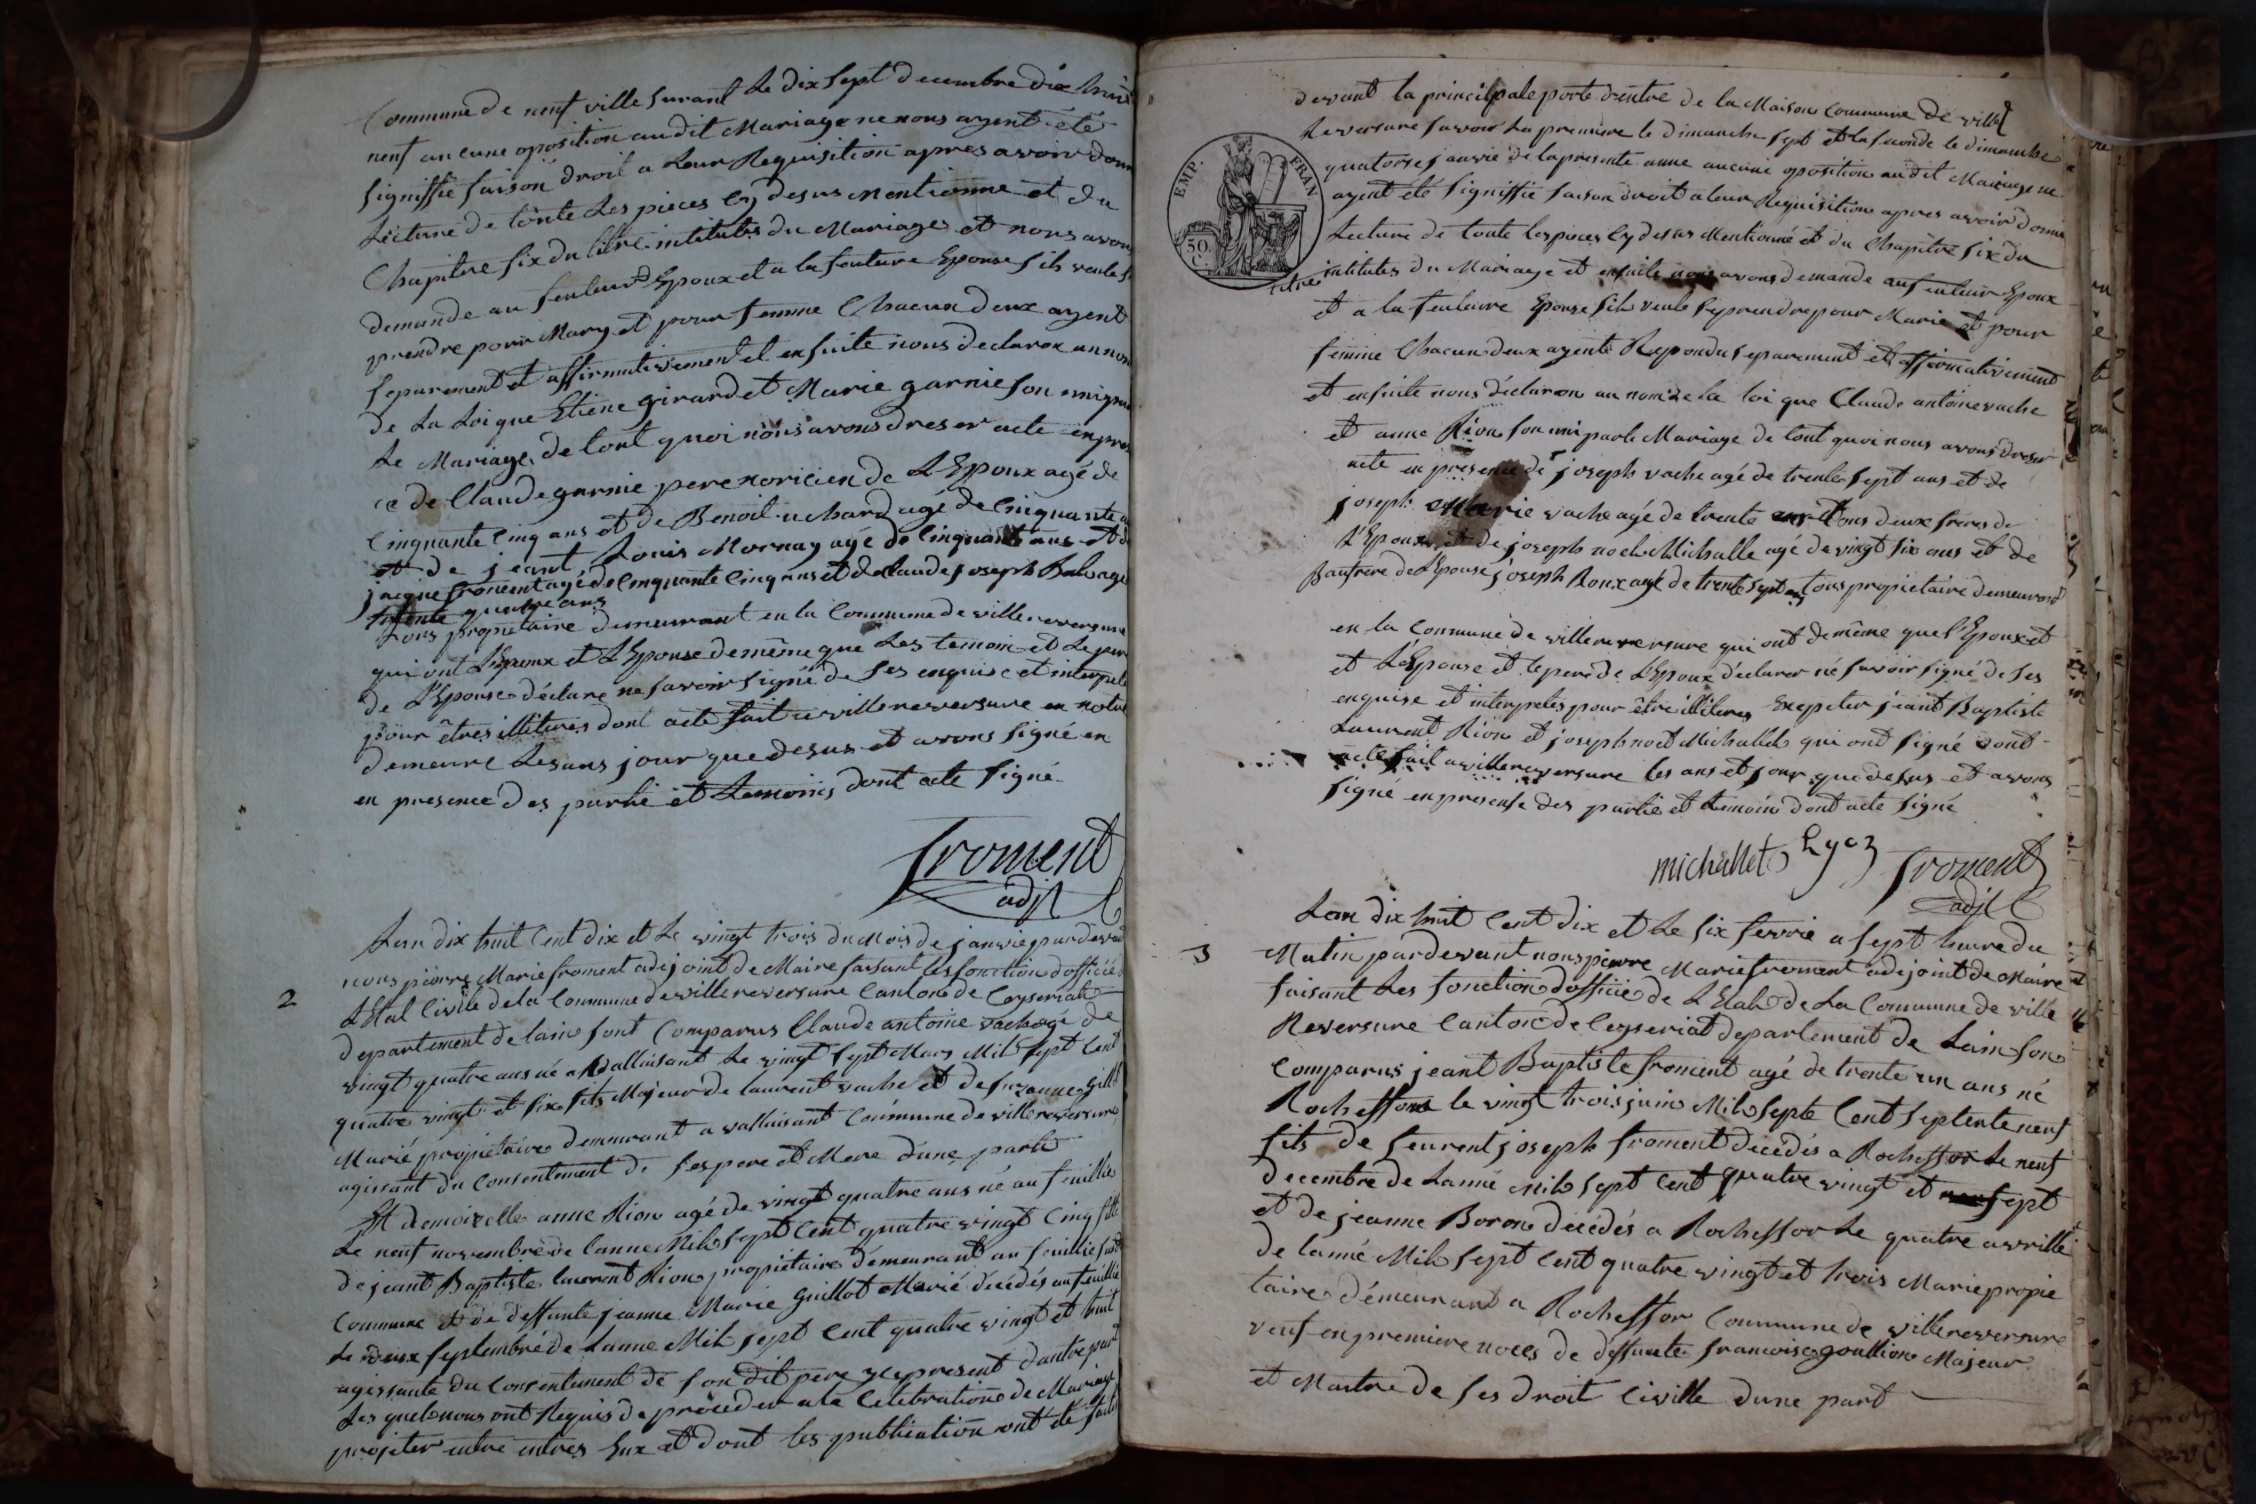 Commune de neuf ville surant Le dix sept decembre dix huit
neuf aucune oposition audit Mariage ne nous ayent été
signiffié faison droit a Leur Requisition apres avoir donn
Lecture de toute Les pieces cy desus mentionne et du
Chapitre six du titre intitutés du Mariage et nous avon
demande au feuteur Epoux et a la feuture Epouse sils veule s
prendre pour Mary et pour femme Chacun deux ayent
separement et affirmativement et ensuite nous declaron au nom
de La Loi que Etiene girard et Marie garnie son uni par
Le Mariage de tout quoi nous avons dresser acte en pres
ce de Claude garnie pere noricien de L'Epoux agé de
Cinquante Cinq ans et de Benoit uchard agé de Cinquante
et de jeant Louis Mornay agé de Cinquante ans et d
jacque froment agé de Cinquante Cinq ans et de claude joseph agé
trente quatre ans
tous propriétaire demeurant en la Commune de villereversure
qui ont L'Epoux et L'Epouse demême que Les temoin et Le per
de L'Epouse déclare ne savoir signé de ses enquise et interpele
pour êtres illitures dont acte fait a villereversure en notre
demeure Les ans jour que desus et avons signé en
en presence des partie et temoins dont acte signé
froment
adjt
2
Lan dix huit Cent dix et Le vingt trois du Mois de janvié pardeva
nous pierre Marie froment adejoint de Maire faisant les fonction dofficié
L'Etat Civile de la Commune de villereversure Canton de Ceyseriat
département de lain sont Comparus Claude antoine vache agé de
vingt quatre ans né a valluisant Le vingt sept Mars Mil sept Cent
quatre vingt et six fils Majeur de laurent vache et de suzanne gillet
Marié propriétaire demeurant a valluisant Commune de villereversure
agissant du Consentement de ses pere et Mere d'une partie
Et demoizelle anne Rion agé de vingt quatre ans né au feuillée
Le neuf novembre de lanne Mil sept Cent quatre vingt Cinq fille
de jeant Baptiste laurent Rion propriétaire demeurant au feuillié
Commune et de deffunte jeanne Marie guillot Marié décédés au feuillié
Le deux septembre de Lanne Mil sept Cent quatre vingt et huit
agissante du Consentement de son dit pere y present dautre part
Les quels nous ont Requis de procéder a la Celebration de Mariage
projeter entre entres Eux et dont les publication ont été faite
devant la principale porte dentre de la Maison Commune de ville
Reversure savoir La premiere le dimanche sept et la seconde le dimanche
quatorse janvié de la presente anne aucune oposition au dit Mariage ne
ayent été signiffié faison droit a leur Requisition apres avoir donne
Lecture de toute les pieces cy desus Mentionné et du Chapitre six du
titre intitutes du Mariage et ensuite nous avons demande au feuteur Epoux
et a la feuteure Epouse sils veule se prendre pour Marie et pour
femme Chacun deux ayente Repondu separement et affirmativement
et ensuite nous déclaron au nom de La loi que Claude antoine vache
et anne Rion son uni par le Mariage de tout quoi nous avons dreser
acte en presence de joseph vache agé de trente sept ans et de
joseph Marie vache agé de trente ans tous deux frères de
L'Epoux et de joseph noel Michalle agé de vingt six ans et de
Baufrere de L'Epouse joseph Roux agé de trente sept ans tous propriétaire demeurant
en la Commune de villereversure qui ont de même que l'Epoux et
et L'Epouse et le pere de L'Epoux declarer né savoir signé de ses
enquise et interpeles pour être illitures Exepeter jeant Baptiste
Laurent Rion et joseph noel Michallet qui ont signé dont
acte fait a villereversure les ans et jour que desus et avons
signé en presense des partie et temoin dont acte signé
EMP. FRAN
50 C.
michallet froment
adjt
3
Lan dix huit Cent dix et Le six fevrié a sept heure du
Matin pardevant nous pierre Marie froment adejoint de Maire
faisant Les fonction dofficié de L'Etat de La Commune de ville
Reversure Canton de Ceyseriat departement de Lain son
Comparus jeant Baptiste froment agé de trente un ans né
Rocheffor le vingt trois juin Mil septe Cent septente neuf
fils de feu rent joseph froment décédés a Rocheffor Le neuf
decembre de Lanné Mil sept Cent quatre vingt et sept
et de jeanne Boron décédés a Rocheffor Le quatre avrille
de lanné Mil sept Cent quatre vingt et trois Marie propie
taire demeurant a Rocheffor Commune de villereversure
veuf en premiere noces de deffunte francoise goullion Majeur
et Maitre de ses droit Civille dune part